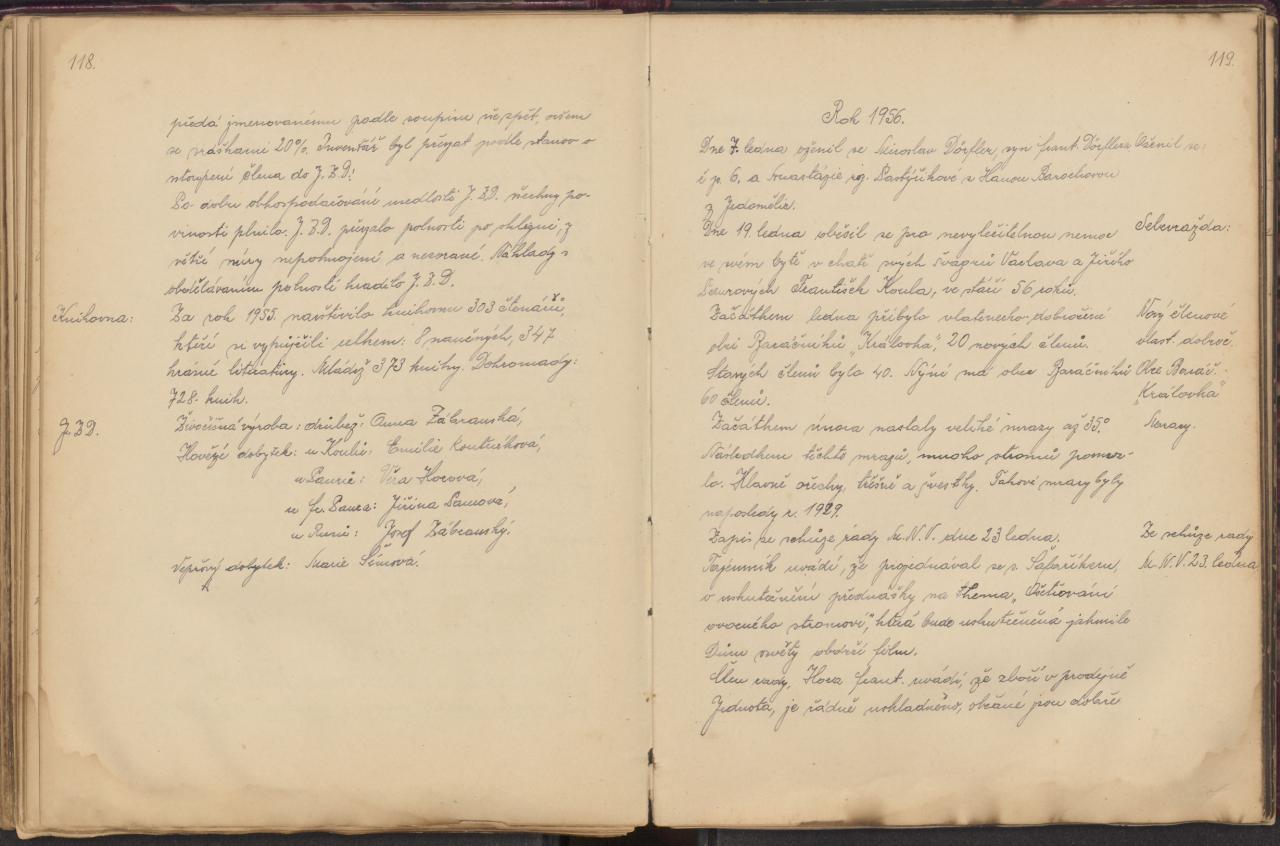 118.
předá jmenovanému podle soupisu zpět, ovšem
se srážkami 20%. Inventář byl přejat podle stanov o
vstoupení člena do J.Z.D.!
Po dobu obhospodařování usedlosti J.Z.D. všechny po-
vinosti plnilo. J.Z.D. přejalo polnosti po sklizni, z
větší míry nepohnojené a nezorané. Náklady s
obděláváním polností hradilo J.Z.D.
Knihovna:
Za rok 1955. navštívilo knihovnu 303 čtenářů,
kteří si vypůjčili celkem: 8 naučných, 347
krásné literatury. Mládež 373 knihy. Dohromady:
728. knih.
J.Z.D.
Živočišná výroba: drůbež: Anna Zábranská,
Hovězí dobytek: u Koulů: Emilie
u Saurů: Věra Hocová,
u fr. Saura: Jiřina Samová,
u Josef Zábranský.
Vepřový dobytek: Marie Símová.
119.
Rok 1956.
Dne 7. ledna oženil se Miroslav Dörfler, syn frant. Dörflera
Oženil se:
č p. 6. a Anastázie roz. s Hanou Barochovou
z Jedomělic.
Dne 19. ledna oběsil se pro nevyléčitelnou nemoc
Sebevražda:
ve svém bytě v chatě svých švagrů Václava a Jiřího
Saurových František Koula, ve stáří 56 roků.
Začátkem ledna přibylo vlastenecko-dobročinné
Nový členové
obci Baráčníků "Královka", 20 nových členů.
vlast. dobroč.
Starých členů bylo 40. Nyní má obec Baráčníků
Obce Baráč.
60 členů.
"Královka"
Začátkem února nastaly veliké mrazy až 35°.
Mrazy.
Následkem těchto mrazů, mnoho stromů pomrz-
lo. Hlavně ořechy, třešně a švestky. Takové mrazy byly
naposledy r. 1929.
Zápis ze schůze rady M.N.V. dne 23 ledna.
Ze schůze rady
Tajemník uvádí, že projednával se s. Šafaříkem,
M.N.V. 23. ledna
o uskutečnění přednášky na thema "Ošetřování
ovocného stromoví", která bude uskutečněná jakmile
Dům osvěty obdrží film.
Člen rady, Hora frant. uvádí, že zboží v prodejně
Jednota, je řádně uskladněno, občané jsou dobře